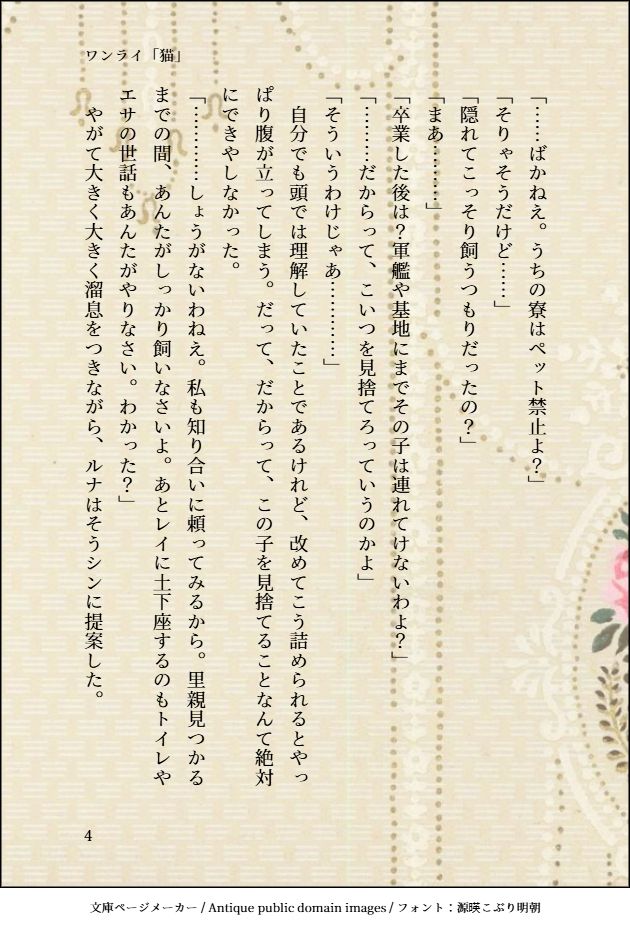 ワンライ「猫」
「……ばかねえ。うちの寮はペット禁止よ？」
「そりゃそうだけど……」
「隠れてこっそり飼うつもりだったの？」
「まあ………」
「卒業した後は？軍艦や基地にまでその子は連れてけないわよ？」
「………だからって、こいつを見捨てろっていうのかよ」
「そういうわけじゃあ…………」
　自分でも頭では理解していたことであるけれど、改めてこう詰められるとやっ
ぱり腹が立ってしまう。だって、だからって、この子を見捨てることなんて絶対
にできやしなかった。
「…………しょうがないわねえ。私も知り合いに頼ってみるから。里親見つかる
までの間、あんたがしっかり飼いなさいよ。あとレイに土下座するのもトイレや
エサの世話もあんたがやりなさい。わかった？」
　やがて大きく大きく溜息をつきながら、ルナはそうシンに提案した。
4
文庫ページメーカー / Antique public domain images / フォント：源暎こぶり明朝